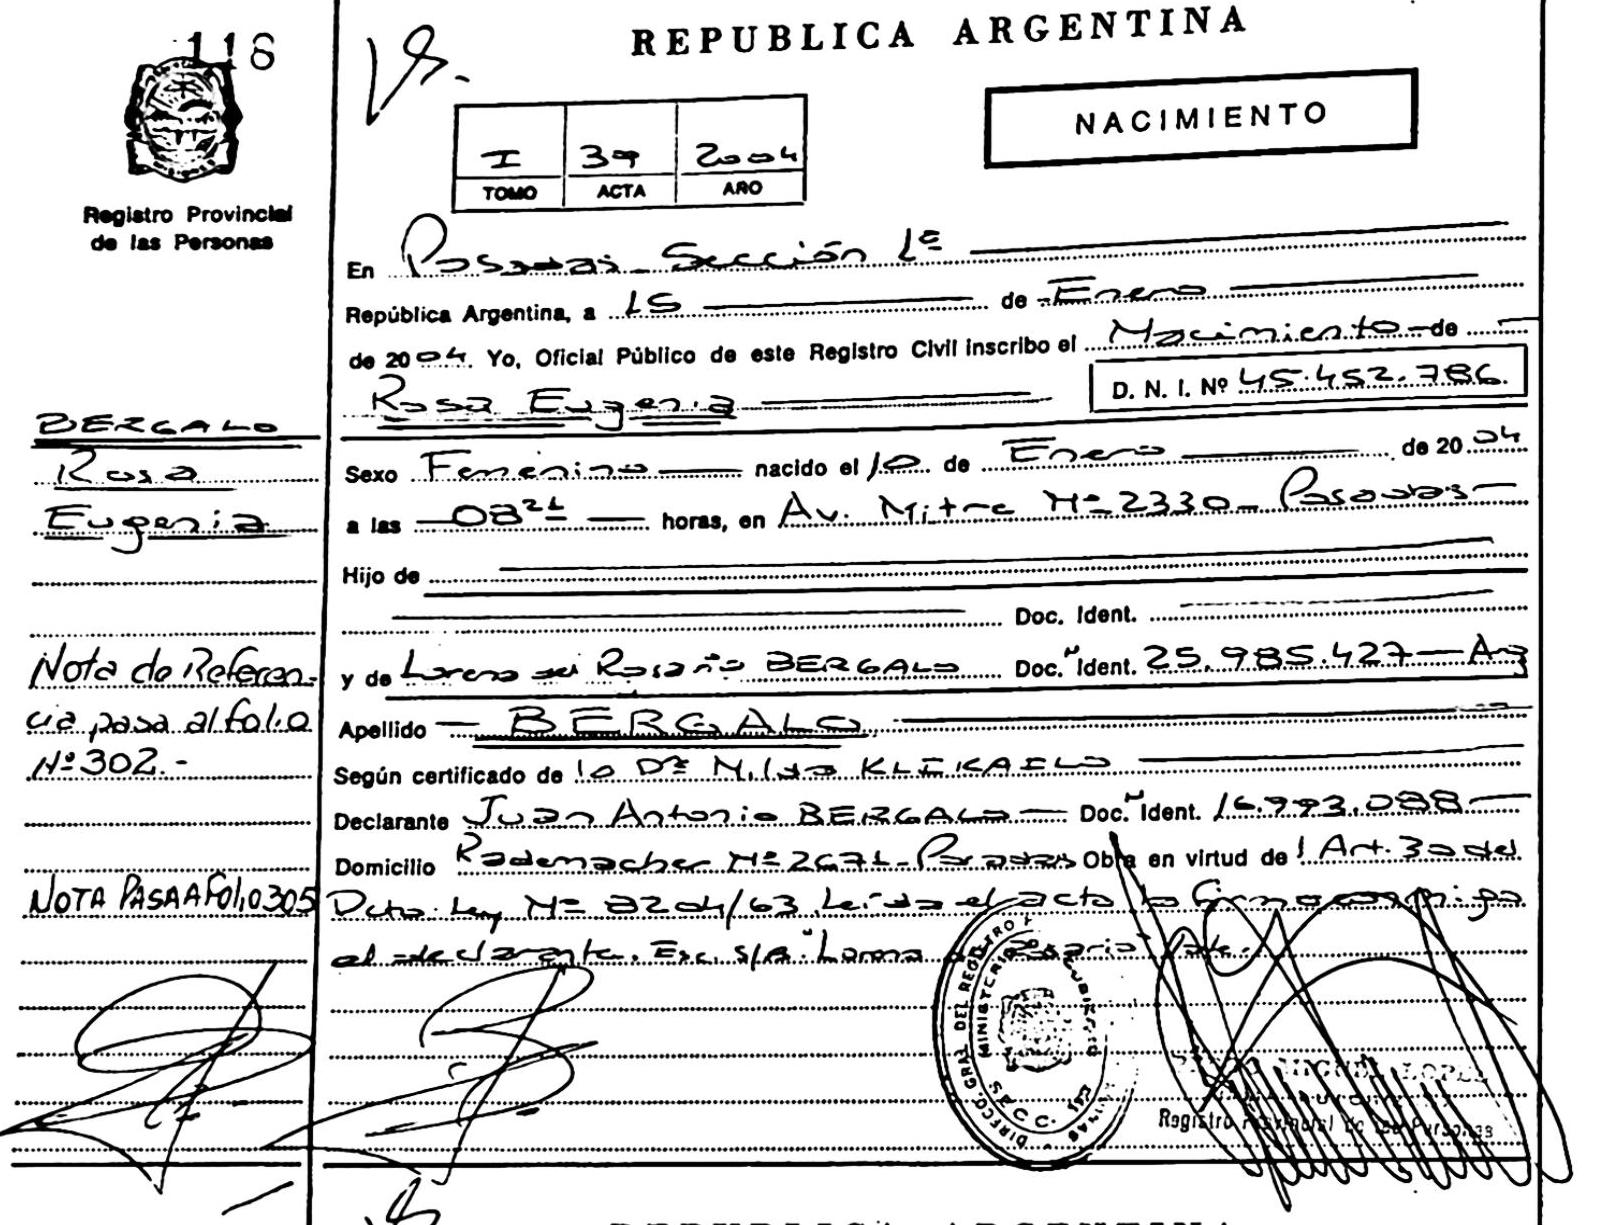 118
REPUBLICA ARGENTINA
NACIMIENTO
I 39 2004
TOMO ACTA AÑO
Registro Provincial
de las Personas
En Posadas Sección 1ª
República Argentina, a 15 de Enero
de 2004. Yo, Oficial Público de este Registro Civil inscribo el Nacimiento de
Rosa Eugenia D. N. I. Nº 45.452.786.
BERGALO
Rosa
Eugenia
Sexo Femenino nacido el 10 de Enero de 2004
a las 08 horas, en Av. Mitre Nº 2330 - Posadas
Hijo de
Doc. Ident.
y de Lorena del Rosario BERGALO Doc. Ident. 25.985.427 - Arg
Apellido BERGALO
Nota de Referen-
cia pasa al folio
Nº 302.-
Según certificado de la Drª KLEKAILO
Declarante Juan Antonio BERGALO Doc. Ident. 16.993.088
Domicilio Rademacher Nº 2671 - Posadas Obra en virtud de l Art. 30 del
NOTA PASA A FOLIO 305
Dcto. Ley Nº 8204/63. Leída el acta la firma conmigo
el declarante. Esc. s/R. "Lorena Rosario" Vale.
DIREC. GRAL. DEL REGISTRO
MINISTERIO
SECC.
MIGUEL LOPEZ
Registro Provincial de las Personas
REPUBLICA ARGENTINA